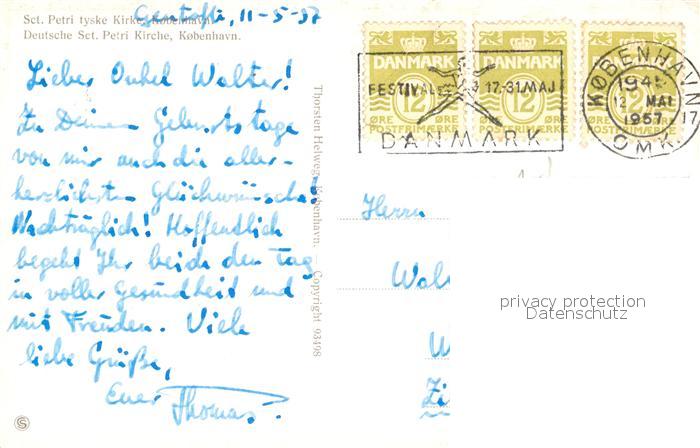 Sct. Petri tyske Kirke, København.
Deutsche Sct. Petri Kirche, København.
Gentofte, 11-5-57
Lieber Onkel Walter!
Zu Deinem Geburtstage
von mir auch die aller-
herzlichsten Glückwünsche!
Nachträglich! Hoffentlich
begeht Ihr beide den Tag
in voller Gesundheit und
mit Freuden. Viele
liebe Grüße,
Euer Thomas.
Thorsten Helweg, København. — Copyright 93498
DANMARK DANMARK
12 12 12
ØRE ØRE ØRE
POSTFRIMÆRKE POSTFRIMÆRKE POSTFRIMÆRKE
FESTIVAL 17.-31 MAJ
DANMARK
KØBENHAVN 17
12 MAI
1957
OMK.
Herrn
privacy protection
Datenschutz